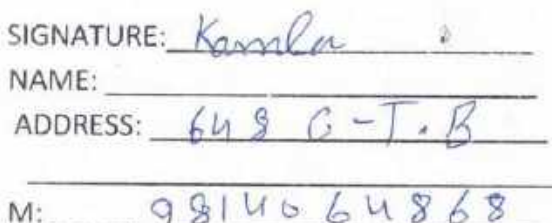 SIGNATURE: Kamla
NAME:
ADDRESS: 648 G-T.B
M: 9814064868